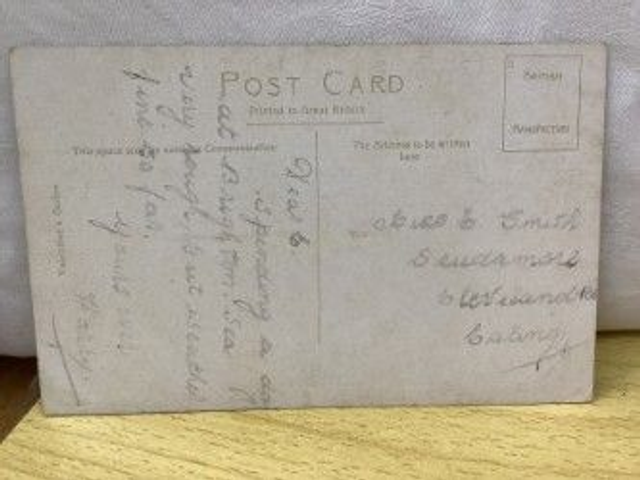 POST CARD
Printed in Great Britain
BRITISH
MANUFACTURE
This space may be used for Correspondence
The Address to be written
here
Dear E
Spending a day
at Brighton. Sea
very rough, but weather
fine so far.
Yours
Harry.
Miss E Smith
Scudamore
Cleveland Rd
Ealing